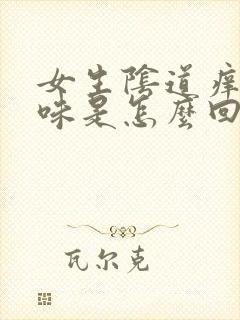 女生陰道痒
味是怎麼回
瓦尔克